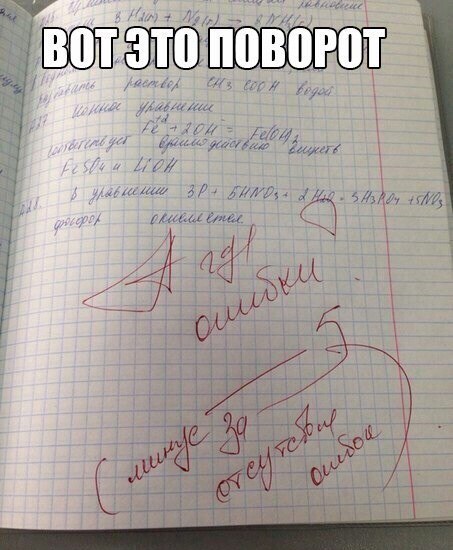 3 H2(г) + N2(г) → 2NH3(г)
ВОТ ЭТО ПОВОРОТ
раствор CH3COOH водой
Ионное уравнение
Fe+2 + 2OH- = Fe(OH)2
соответствует взаимодействию веществ
FeSO4 и LiOH
В уравнении 3P + 5HNO3 + 2H2O = 3H3PO4 + 5NO
фосфор окисляется
А где
ошибки
5
(минус за
отсутствие
ошибок